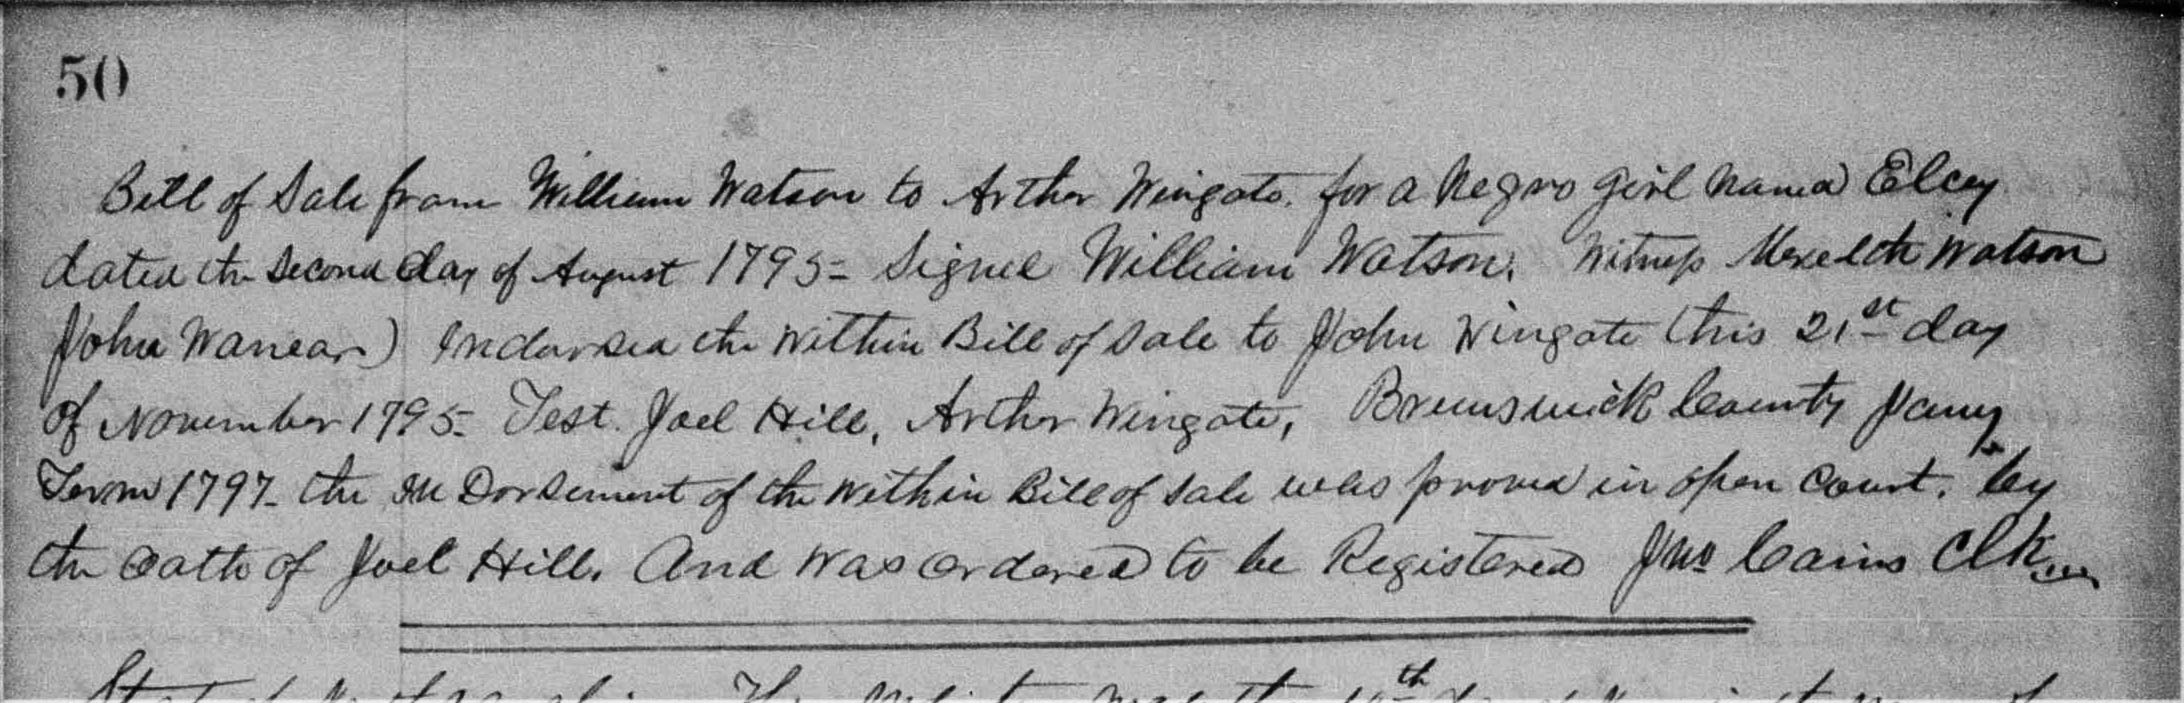 50
Bill of Sale from William Watson to Arthur Wingate. for a Negro Girl named Elcey
dated the Second day of August 1795 = Signed William Watson. Witness Meredith Watson
John Wanear) Indorsed the within Bill of Sale to John Wingate this 21st day
of November 1795. Test. Joel Hill, Arthur Wingate, Brunswick County Jany
Term 1797. the InDorsement of the within Bill of Sale was proved in open Court. by
the Oath of Joel Hill. And was ordered to be Registered Jno Cains Clk